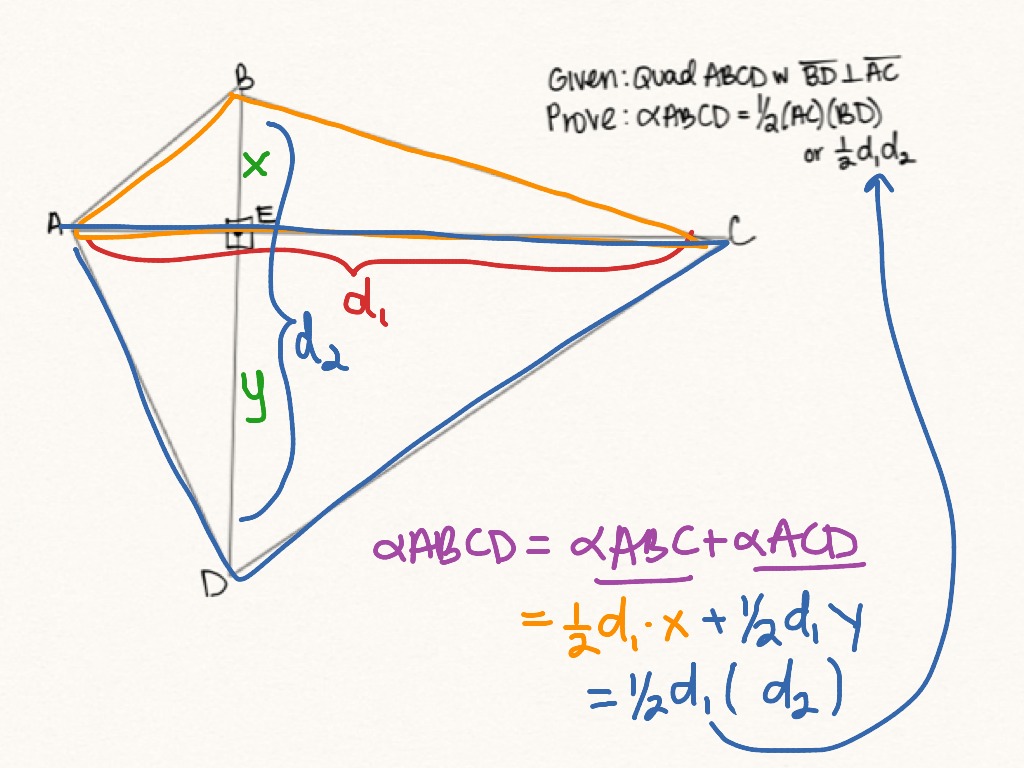 Given: Quad ABCD w B̅D̅ ⊥ A̅C̅
Prove: αABCD = ½(AC)(BD)
or ½d₁d₂
B
x
A
E
C
d₁
d₂
y
D
αABCD = αABC + αACD
= ½d₁·x + ½d₁y
= ½d₁( d₂ )